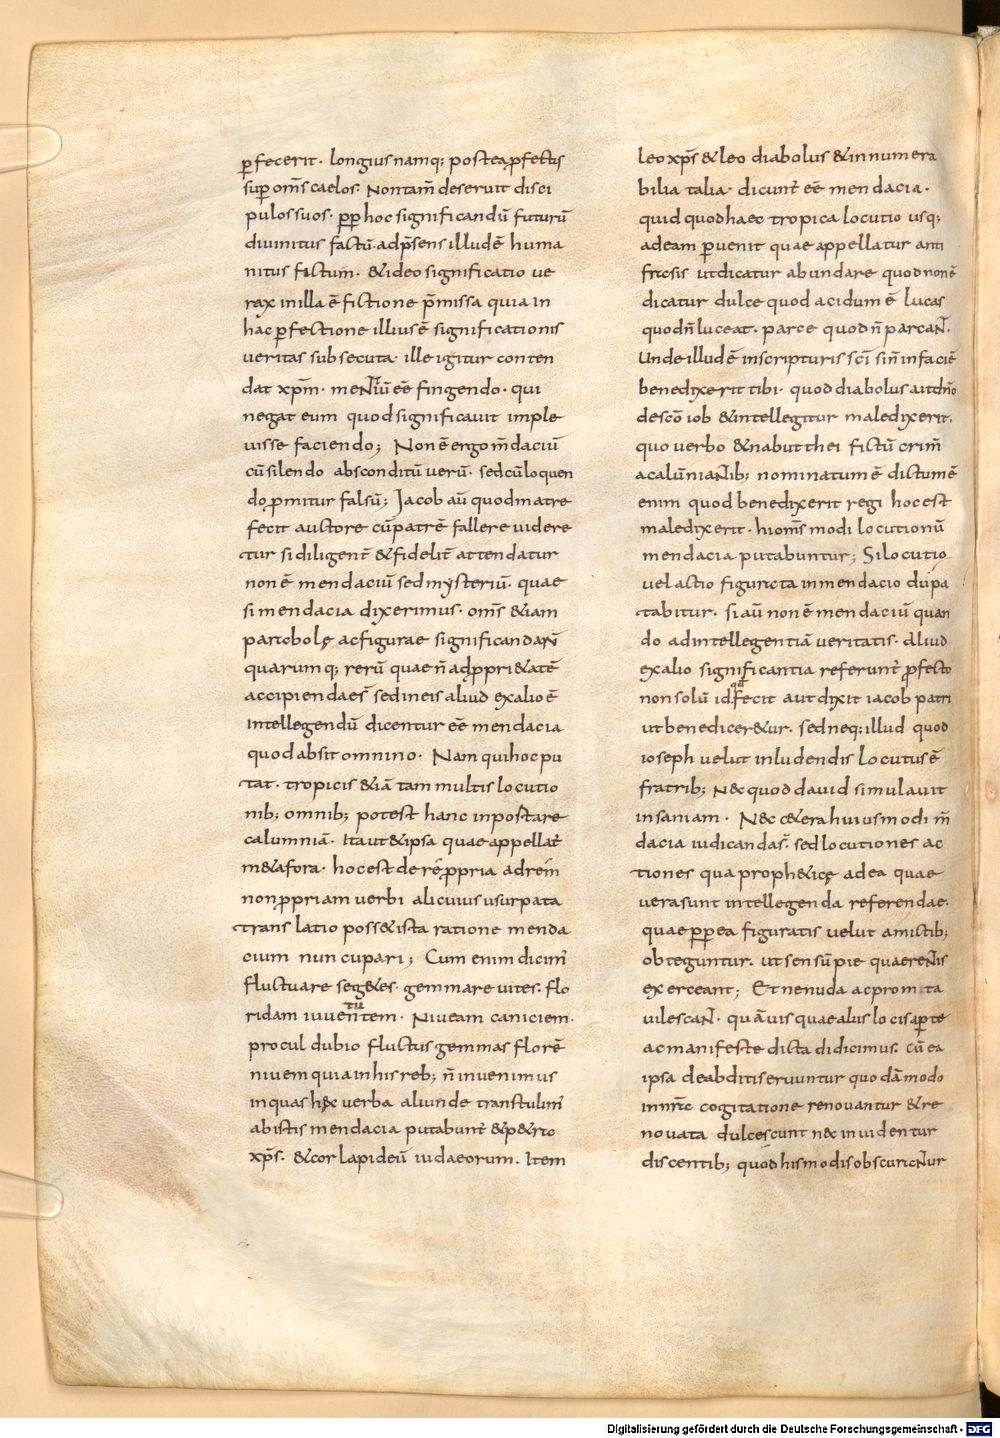 ꝑfecerit · longius namq; postea ꝓfectus
sup̄ om̄s caelos · Non tam̄ deseruit disci
pulos suos · ꝑꝑ hoc significandū futurū
diuinitus factū · ad p̄sens illud ē huma
nitus fictum · & ideo significatio ue
rax in illa ē fictione p̄missa quia in
hac ꝑfectione illius ē significationis
ueritas subsecuta · ille igitur conten
dat xp̄m · mentitū eē fingendo · qui
negat eum quod significauit imple
uisse faciendo; Non ē ergo m̄daciū
cū silendo absconditū uerū · sed cū loquen
do ꝓmitur falsū; Jacob aū quod matre
fecit auctore cū patrē fallere uidere
tur si diligent̄ & fidelit̄ attendatur
non ē mendaciū sed mysteriū · quae
si mendacia dixerimus · om̄s &iam
parabolę ac figurae significandarū
quarumq; rerū quae n̄ ad ꝓpri&atē
accipiendae s̄ sed in eis aliud ex alio ē
intellegendū dicentur eē mendacia
quod absit omnino · Nam qui hoc pu
tat · tropicis &iā tam multis locutio
nib; omnib; potest hanc inportare
calumniā · Ita ut & ipsa quae appellat̄
m&afora · hoc est de rē ꝓpria ad rem
non ꝓpriam uerbi alicuius usurpata
translatio poss& ista ratione menda
cium nuncupari; Cum enim dicim̄
fluctuare seg&es · gemmare uites · flo
ridam iuuentutem · Niueam caniciem ·
procul dubio fluctus gemmas florē
niuem quia in his reb; n̄ inuenimus
in quas hęc uerba aliunde transtulim̄
ab istis mendacia putabunt̄ & p&ra
xp̄s · & cor lapideū iudaeorum · Item
leo xp̄s & leo diabolus & innumera
bilia talia · dicunt̄ eē mendacia ·
quid quod haec tropica locutio usq;
ad eam ꝑuenit quae appellatur anti
frasis ut dicatur abundare quod non ē
dicatur dulce quod acidum ē lucas
quod n̄ luceat · parce quod n̄ parcant ·
Unde illud ē in scripturis sc̄i si n̄ in faciē
benedixerit tibi · quod diabolus ait dn̄o
de sc̄o iob & intellegitur maledixerit ·
quo uerbo & nabuthei fictū crim̄
a calūniantib; nominatum ē dictum ē
enim quod benedixerit regi hoc est
maledixerit · hi om̄s modi locutionū
mendacia putabuntur; Si locutio
uel actio figurata in mendacio dupa
tabitur · si aū non ē mendaciū quan
do ad intellegentiā ueritatis · aliud
ex alio significantia referunt̄ ꝓfecto
non solū id qđ fecit aut dixit iacob patri
ut benedicer&ur · sed neq; illud quod
ioseph uelut inludendis locutus ē
fratrib; N&c quod dauid simulauit
insaniam · N&c c&era huiusmodi m̄
dacia iudicanda s̄ · sed locutiones ac
tiones qua proph&icę ad ea quae
uera sunt intellegenda referendae ·
quae ꝑꝑea figuratis uelut amictib;
obteguntur · ut sensū pie quaerentis
exerceant; Et ne nuda ac promta
uilescant · quāuis quae aliis locis aꝑte
ac manifeste dicta didicimus · cū ea
ipsa de abditis eruuntur quodāmodo
in nr̄a cogitatione renouantur & re
nouata dulcescunt nec inuidentur
discentib; quod his modis obscurantur
Digitalisierung gefördert durch die Deutsche Forschungsgemeinschaft - DFG